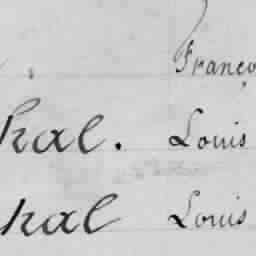 Franço
kal. Louis
kal Louis